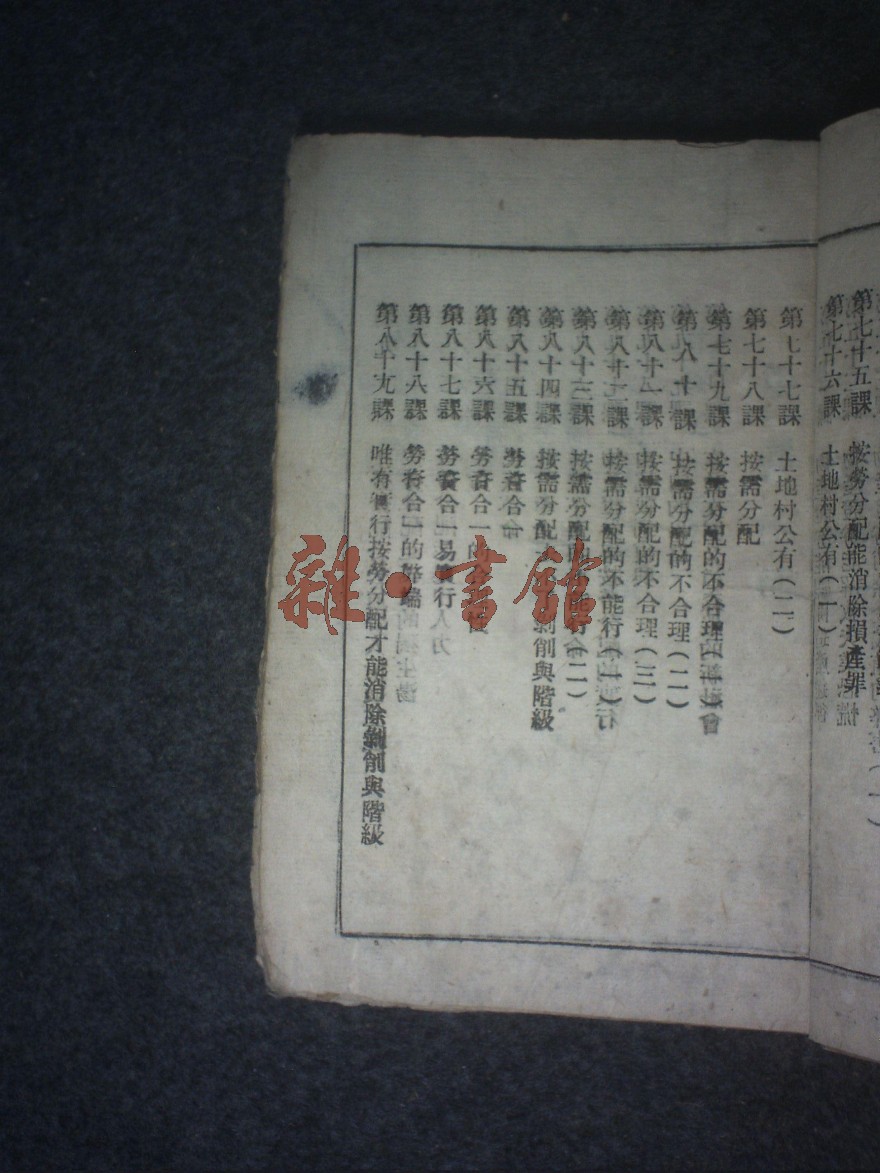 第七十五課　按勞分配能消除損產罪
第七十六課　土地村公有(一)
第七十七課　土地村公有(二)
第七十八課　按需分配
第七十九課　按需分配的不合理
第八十課　按需分配的不合理(二)
第八十一課　按需分配的不合理(三)
第八十二課　按需分配的不能行(一)
第八十三課　按需分配的不能行(二)
第八十四課　按需分配　剝削與階級
第八十五課　勞資合一
第八十六課　勞資合一的
第八十七課　勞資合一易
第八十八課　勞資合一的弊端
第八十九課　唯有實行按勞分配才能消除剝削與階級
雜·書館